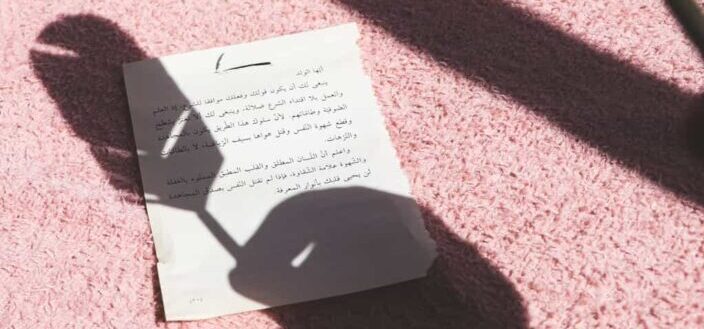 أيها الولد
ينبغى لك أن يكون قولك وفعلك موافقا للشرع، إذ العلم
والعمل بلا اقتداء الشرع ضلالة، وينبغى لك ألا تغتر بالشطح
الصوفية وطاماتهم. لأنّ سلوك هذا الطّريق يكون بالمجاهدة
وقطع شهوة النّفس وقتل هواها بسيف الرّياضة، لا بالطّامات
والترهات.
واعلم أنّ اللّسان المطلق والقلب المطبق المملوء بالغفلة
والشّهوة علامة الشّقاوة، فإذا لم تقتل النّفس بصدق المجاهدة
لن يحيى قلبك بأنوار المعرفة.